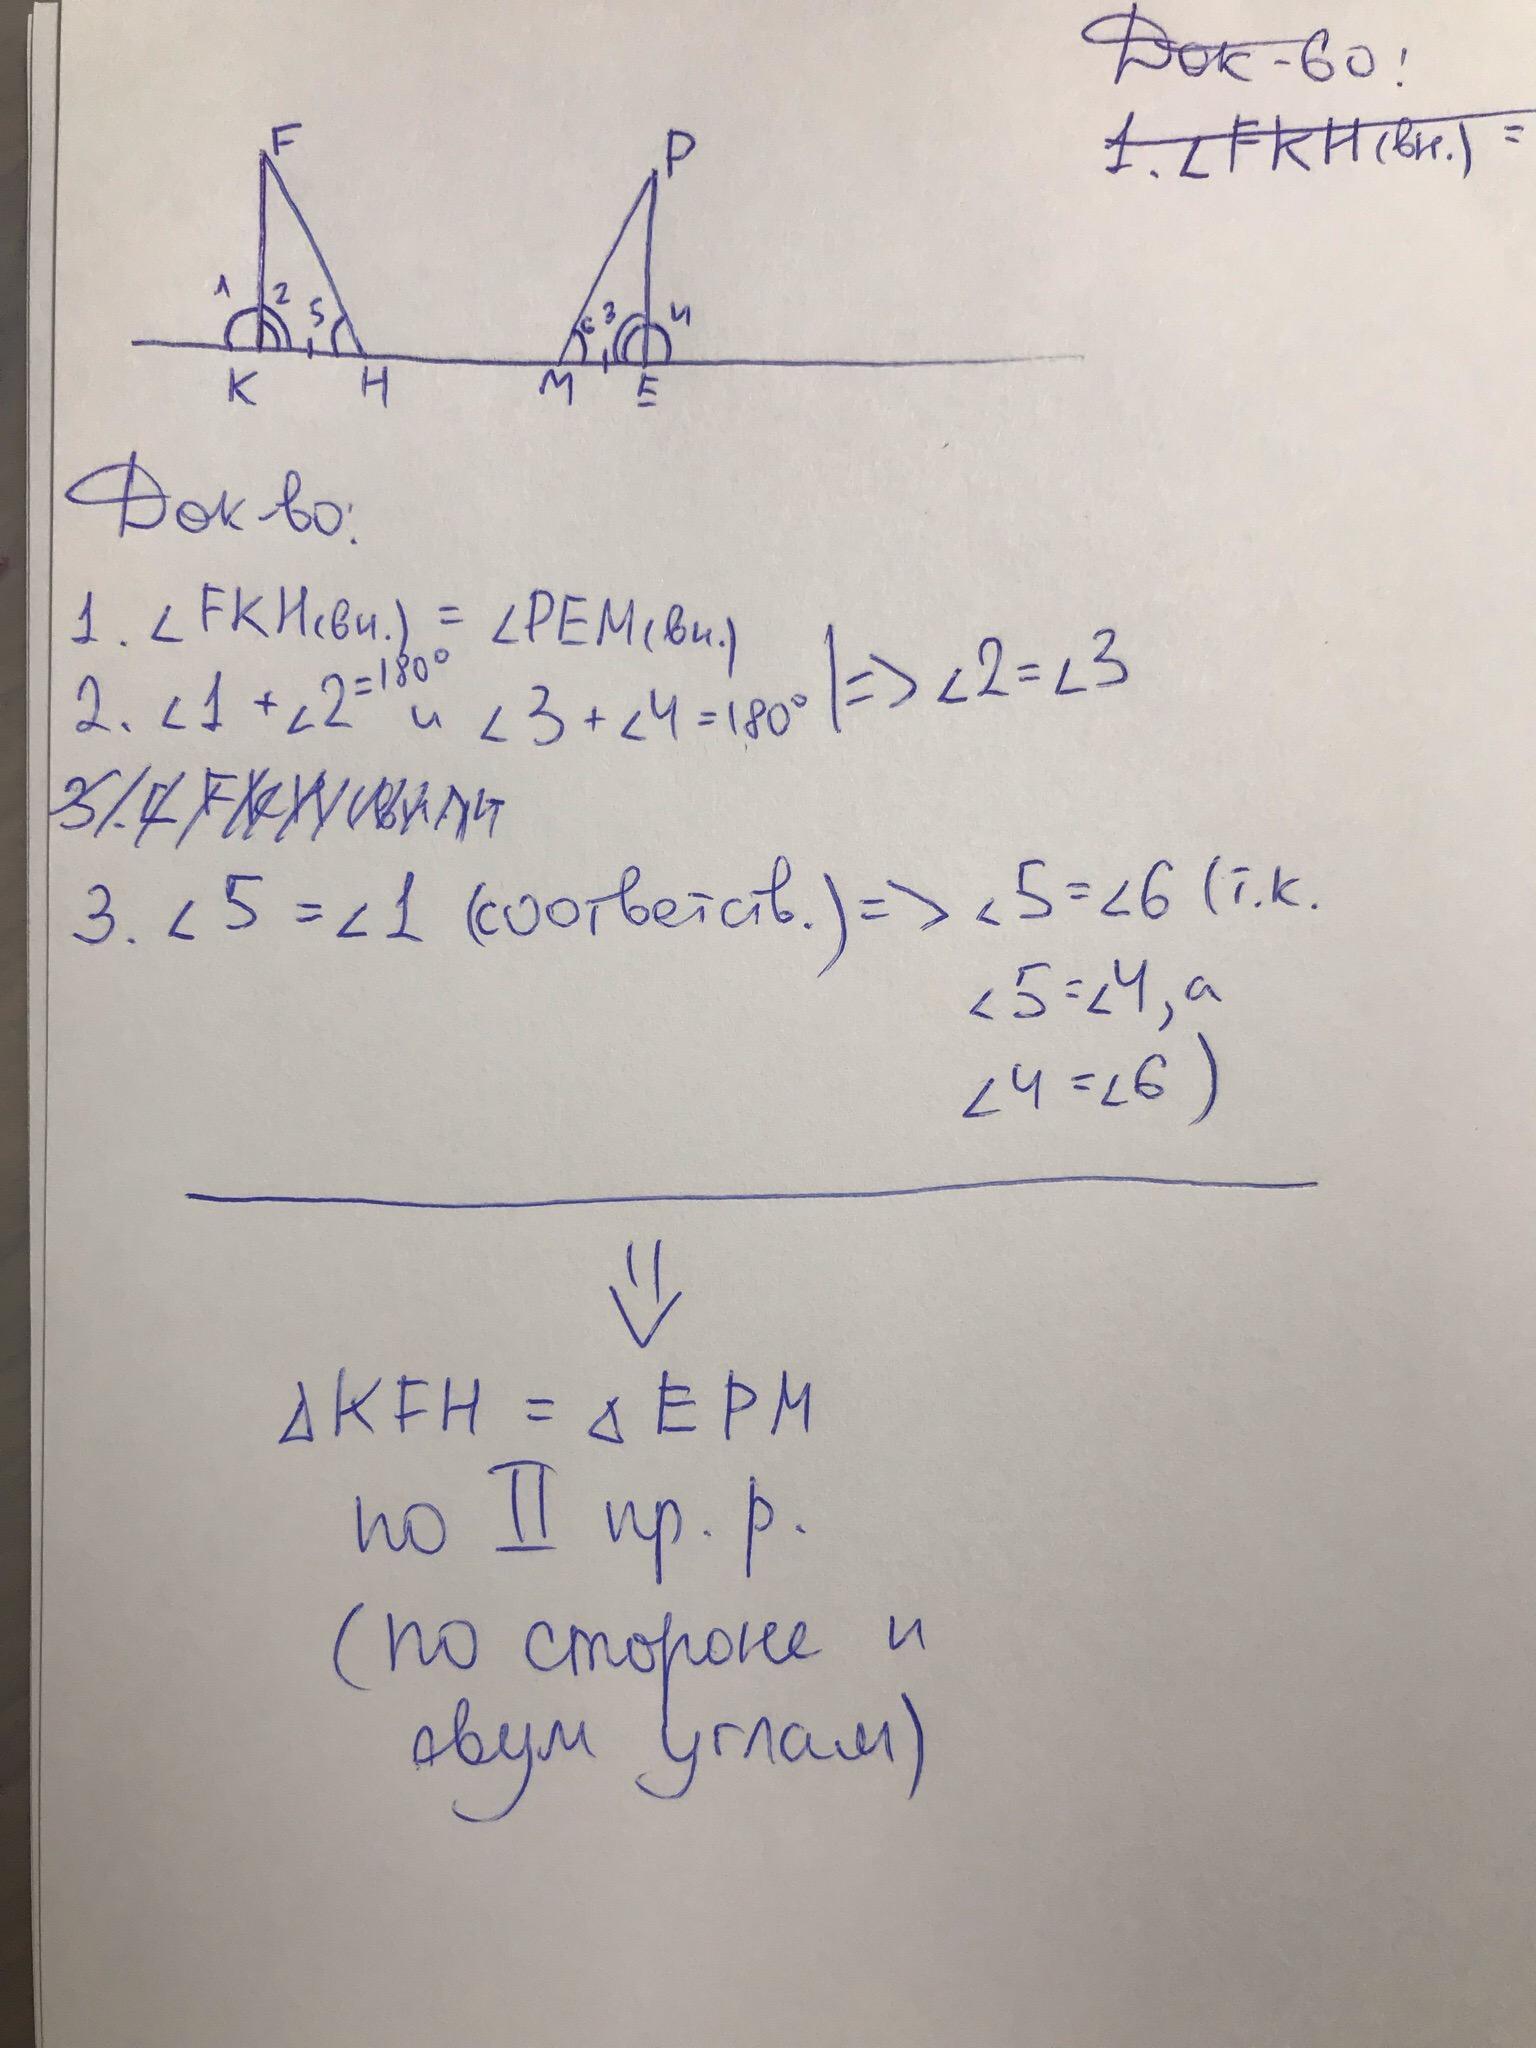 Док-во:
1. ∠FKH(вн.) =
F
P
1 2 5
6 3 4
K H M E
Док-во:
1. ∠FKH(вн.) = ∠PEM(вн.)
2. ∠1 + ∠2 = 180° и ∠3 + ∠4 = 180° | => ∠2 = ∠3
3. ∠5 = ∠1 (соответств.) => ∠5 = ∠6 (т.к.
∠5 = ∠4, а
∠4 = ∠6)
ΔKFH = ΔEPM
по II пр. р.
(по стороне и
двум углам)